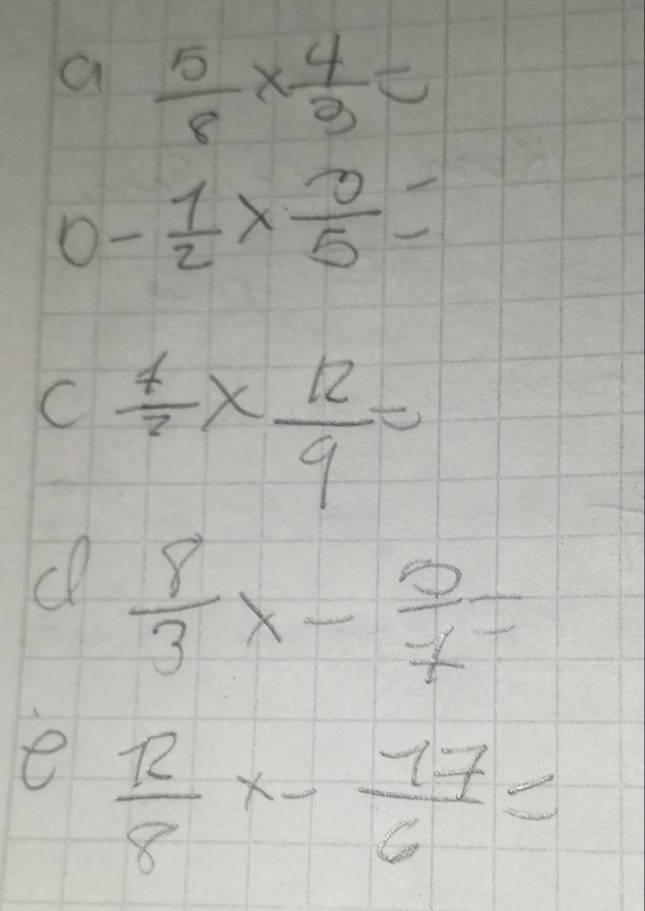 a 5/8 × 4/3 =
b - 1/2 × 3/5 =
c 1/2 × 12/9 =
d 8/3 × - 5/7 =
e 12/8 × - 17/6 =